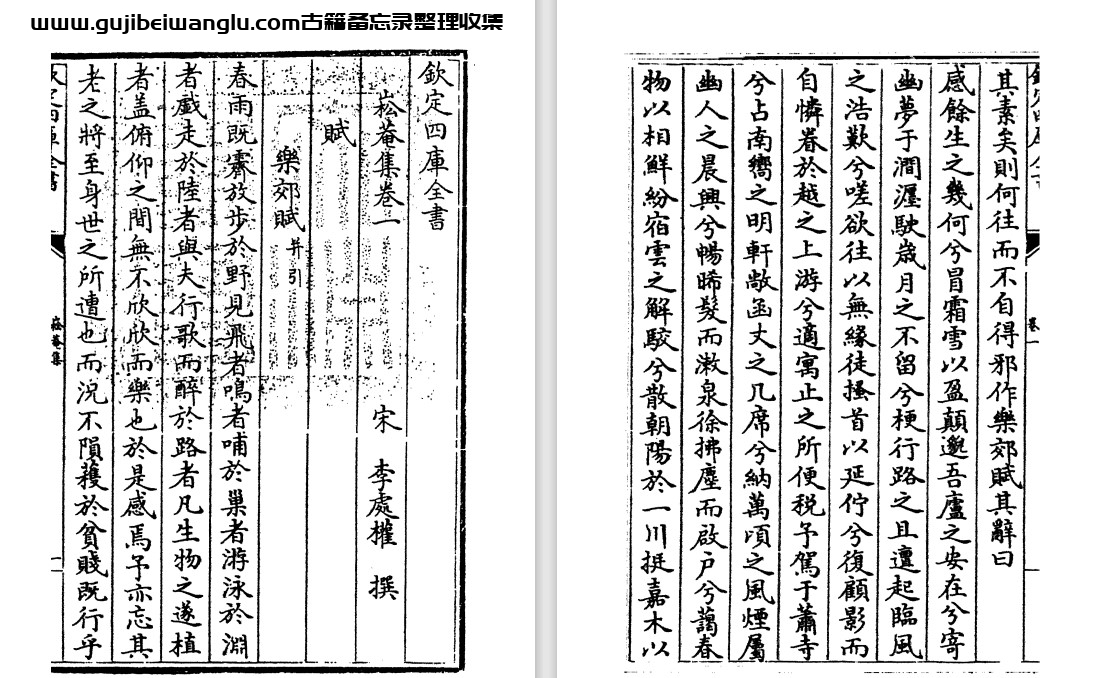 www.gujibeiwanglu.com古籍备忘录整理收集
欽定四庫全書
崧菴集卷一
宋 李處權 撰
賦
樂郊賦并引
春雨既霽放步於野見飛者鳴者哺於巢者游泳於淵
者戲走於陸者與夫行歌而醉於路者凡生物之遂植
者盖俯仰之間無不欣欣而樂也於是感焉予亦忘其
老之將至身世之所遭也而況不隕蘀於貧賤既行乎
崧菴集
一
其素矣則何往而不自得邪作樂郊賦其辭曰
感餘生之幾何兮冒霜雪以盈顛邈吾廬之安在兮寄
幽夢于澗瀍駛歲月之不留兮梗行路之且邅起臨風
之浩歎兮嗟欲往以無緣徒搔首以延佇兮復顧影而
自憐眷於越之上游兮適寓止之所便税予駕于蕭寺
兮占南嚮之明軒敞函丈之几席兮納萬頃之風煙屬
幽人之晨興兮暢晞髮而漱泉徐拂塵而啟户兮藹春
物以相鮮紛宿雲之解駮兮散朝陽於一川挺嘉木以